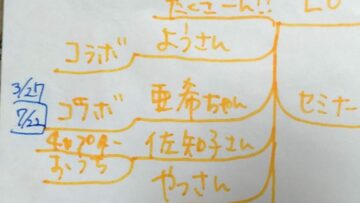 たくさーん!!
コラボ ようさん
3/27
7/22
コラボ 亜希ちゃん
セミナー
佐知子さん
おうち
やっさん